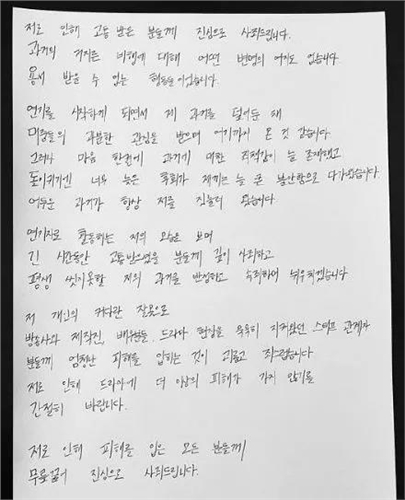 저로 인해 고통 받은 분들께 진심으로 사죄드립니다.
과거의 저지른 비행에 대해 어떤 변명의 여지도 없습니다.
용서 받을 수 없는 행동들이었습니다.
연기를 시작하게 되면서 제 과거를 덮어둔 채
대중들의 과분한 관심을 받으며 여기까지 온 것 같습니다.
그러나 마음 한편에 과거에 대한 죄책감이 늘 존재했고
돌이키기엔 너무 늦은 후회가 저에게는 늘 큰 불안함으로 다가왔습니다.
어두운 과거가 항상 저를 짓눌러 왔습니다.
연기자로 활동하는 저의 모습을 보며
긴 시간동안 고통받으셨을 분들께 깊이 사죄하고
평생 씻지못할 저의 과거를 반성하고 속죄하며 뉘우치겠습니다
저 개인의 커다란 잘못으로
방송사와 제작진, 배우들, 드라마 현장을 묵묵히 지켜왔던 스태프 관계자
분들께 엄청난 피해를 입히는 것이 괴롭고 죄스럽습니다
저로 인해 드라마에 더 이상의 피해가 가지 않기를
간절히 바랍니다.
저로 인해 피해를 입은 모든 분들께
무릎꿇어 진심으로 사죄드립니다.